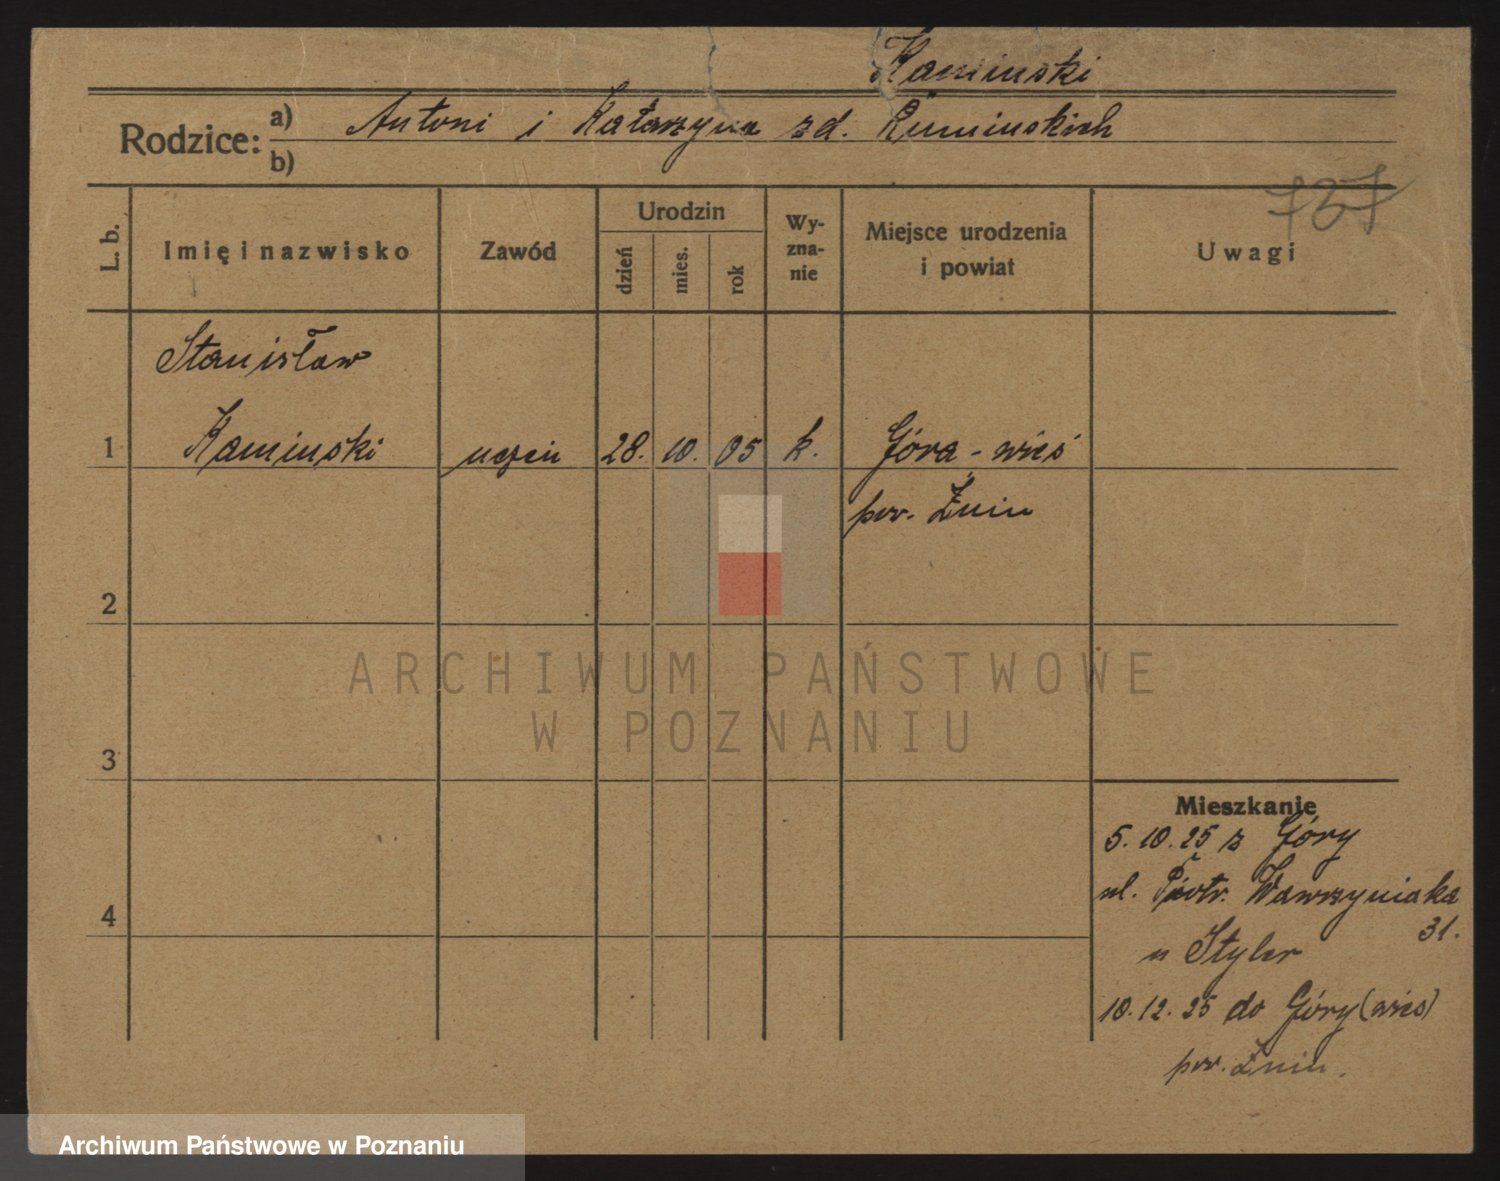 Kaminski
Rodzice: a) Antoni i Katarzyna zd. Rumińskich
b)
737
L. b.
Imię i nazwisko
Zawód
Urodzin
dzień
mies.
rok
Wy-
zna-
nie
Miejsce urodzenia
i powiat
Uwagi
Stanisław
1 Kaminski uczeń 28. 10. 05 k. Góra - wieś
pow. Żnin
2
3
4
Mieszkanie
5.10.25 z Góry
ul. Piotr. Wawrzyniaka
31.
u Styler
10.12.25 do Góry (wieś)
pow. Żnin.
ARCHIWUM PAŃSTWOWE
W POZNANIU
Archiwum Państwowe w Poznaniu